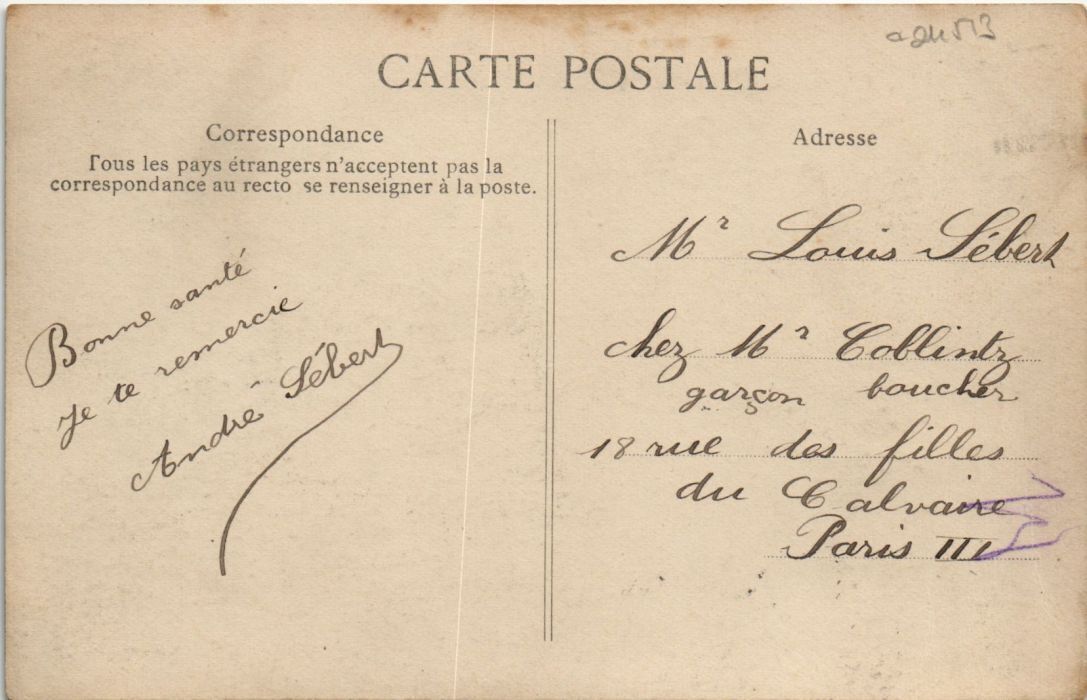 CARTE POSTALE
Correspondance
Tous les pays étrangers n'acceptent pas la
correspondance au recto se renseigner à la poste.
Bonne santé
je te remercie
André Sébert
Adresse
Mr Louis Sébert
chez Mr Coblintz
garçon boucher
18 rue des filles
du Calvaire
Paris III